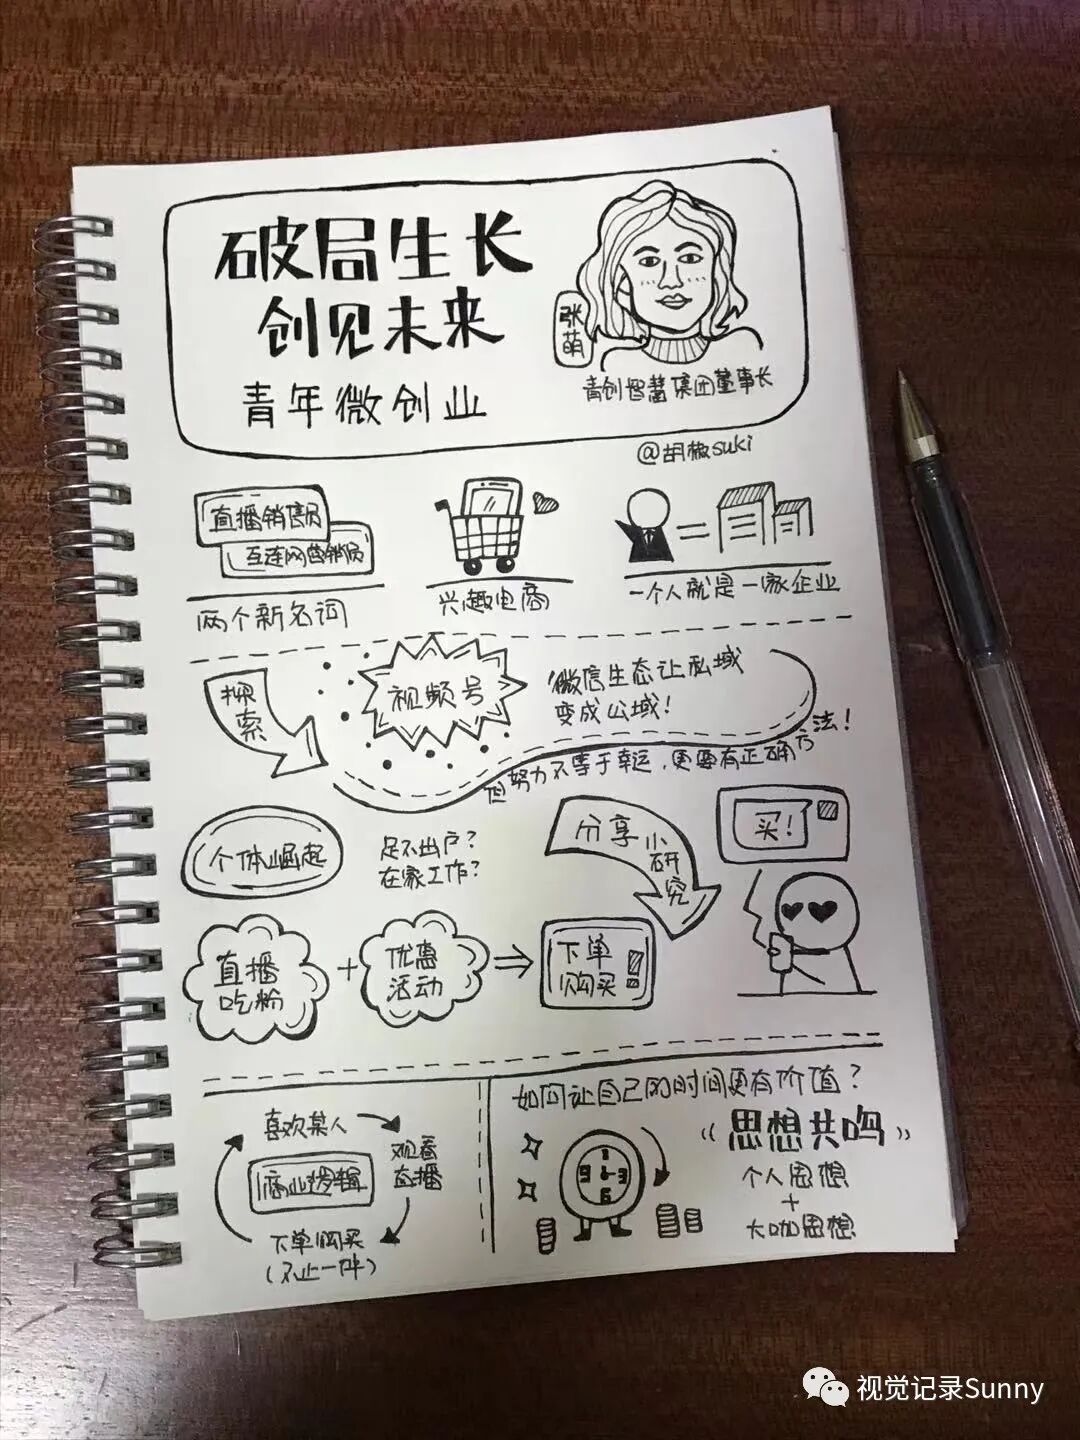 破局生长
创见未来
青年微创业
张萌
青创智慧集团董事长
@胡椒suki
直播销售员
互连网营销员
两个新名词
兴趣电商
一个人就是一家企业
探索
视频号
微信生态让私域
变成公域!
但努力不等于幸运,更要有正确方法!
个体崛起
足不出户?
在家工作?
分享小研究
买!
直播
吃粉
+
优惠
活动
下单
购买
喜欢某人
观看
直播
商业逻辑
下单购买
(不止一件)
如何让自己的时间更有价值?
“思想共鸣”
个人思想
+
大咖思想
视觉记录Sunny